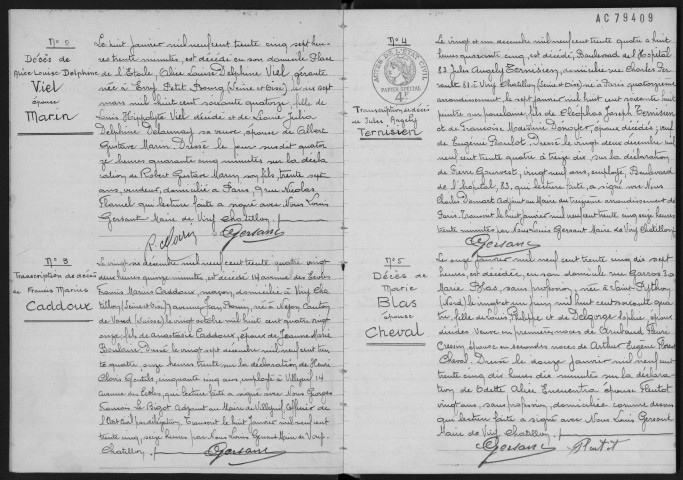 N° 2
Décès de
Alice Louise Delphine
Viel
épouse
Marin
Le huit janvier mil neuf cent trente cinq sept heu-
res trente minutes, est décédée en son domicile Place
de l'Etoile, Alice Louise Delphine Viel, gérante
née à Evry Petit Bourg (Seine et Oise), le dix sept
mars mil huit cent soixante quatorze, fille de
Louis Hippolyte Viel décédé et de Léonie Julia
Delphine Delaunay sa veuve, épouse de Albert
Gustave Marin. Dressé le jour susdit quator
ze heures quarante cinq minutes sur la décla
ration de Robert Gustave Marin son fils, trente sept
ans, vendeur, domicilié à Paris, 9 rue Nicolas
Flamel qui lecture faite a signé avec Nous Louis
Gersant Maire de Viry Chatillon.
R. Marin
LGersant
N° 3
Transcription de décès
de Francis Marius
Caddoux
Le vingt six décembre mil neuf cent trente quatre vingt
deux heures quinze minutes, est décédé 14 avenue des Ecoles
Francis Marius Caddoux, maçon, domicilié à Viry Cha
tillon (Seine et Oise), né à Nyon Canton
de Vaud (Suisse) le vingt octobre mil huit cent quatre vingt
onze, fils de Anastasie Caddoux, époux de Jeanne Marie
Boulaire. Dressé le vingt sept décembre mil neuf cent tren
te quatre, onze heures trente sur la déclaration de Henri
Clovis Gentils, cinquante cinq ans, employé à Villejuif 14
avenue des Ecoles, qui lecture faite a signé avec Nous Georges
François Le Bigot Adjoint au Maire de Villejuif, Officier de
l'Etat Civil par délégation. Transcrit le huit janvier mil neuf cent
trente cinq, seize heures par Nous Louis Gersant Maire de Viry-
Chatillon.
LGersant
AC 79409
N° 4
PAPIER DE L'ETAT CIVIL
PAPIER SPECIAL
4F
Transcription de décès
de Jules Angely
Ternisien
Le vingt et un décembre mil neuf cent trente quatre à huit
heures quarante cinq, est décédé, Boulevard de l'Hopital
83, Jules Angely Ternisien, domicilié rue Charles Per
rault 31 à Viry Chatillon (Seine et Oise) né à Paris quatorzième
arrondissement, le sept janvier mil huit cent soixante huit
peintre sur porcelaine, fils de Cléophas Joseph Ternisien
et de Françoise Maxime, époux décédés; veuf
de Eugénie Raulot. Dressé le vingt deux décembre mil
neuf cent trente quatre à treize dix, sur la déclaration
de Pierre Gauvest, vingt neuf ans, employé, Boulevard
de l'Hopital, 83, qui lecture faite, a signé avec Nous
Charles Damart Adjoint au Maire du treizième arrondissement de
Paris. Transcrit le huit janvier mil neuf cent trente cinq seize heures
trente minutes par Nous Louis Gersant Maire de Viry Chatillon.
LGersant
N° 5
Décès de
Marie
Blas
épouse
Cheval
Le onze janvier mil neuf cent trente cinq dix sept
heures, est décédée, en son domicile rue Garros 30
Marie Blas, sans profession, née à Saint Python
(Nord) le vingt et un juin mil huit cent soixante qua
tre, fille de Louis Philippe et de Delgorge Sophie, époux
décédés. Veuve en premières noces de
Crespin, épouse en secondes noces de Arthur Eugène Florent
Cheval. Dressé le douze janvier mil neuf cent
trente cinq dix heures dix minutes sur la déclara
tion de Odette Alice épouse Plutot
vingt ans, sans profession, domiciliée comme dessus
qui lecture faite a signé avec Nous Louis Gersant
Maire de Viry Chatillon.
LGersant
Plutot